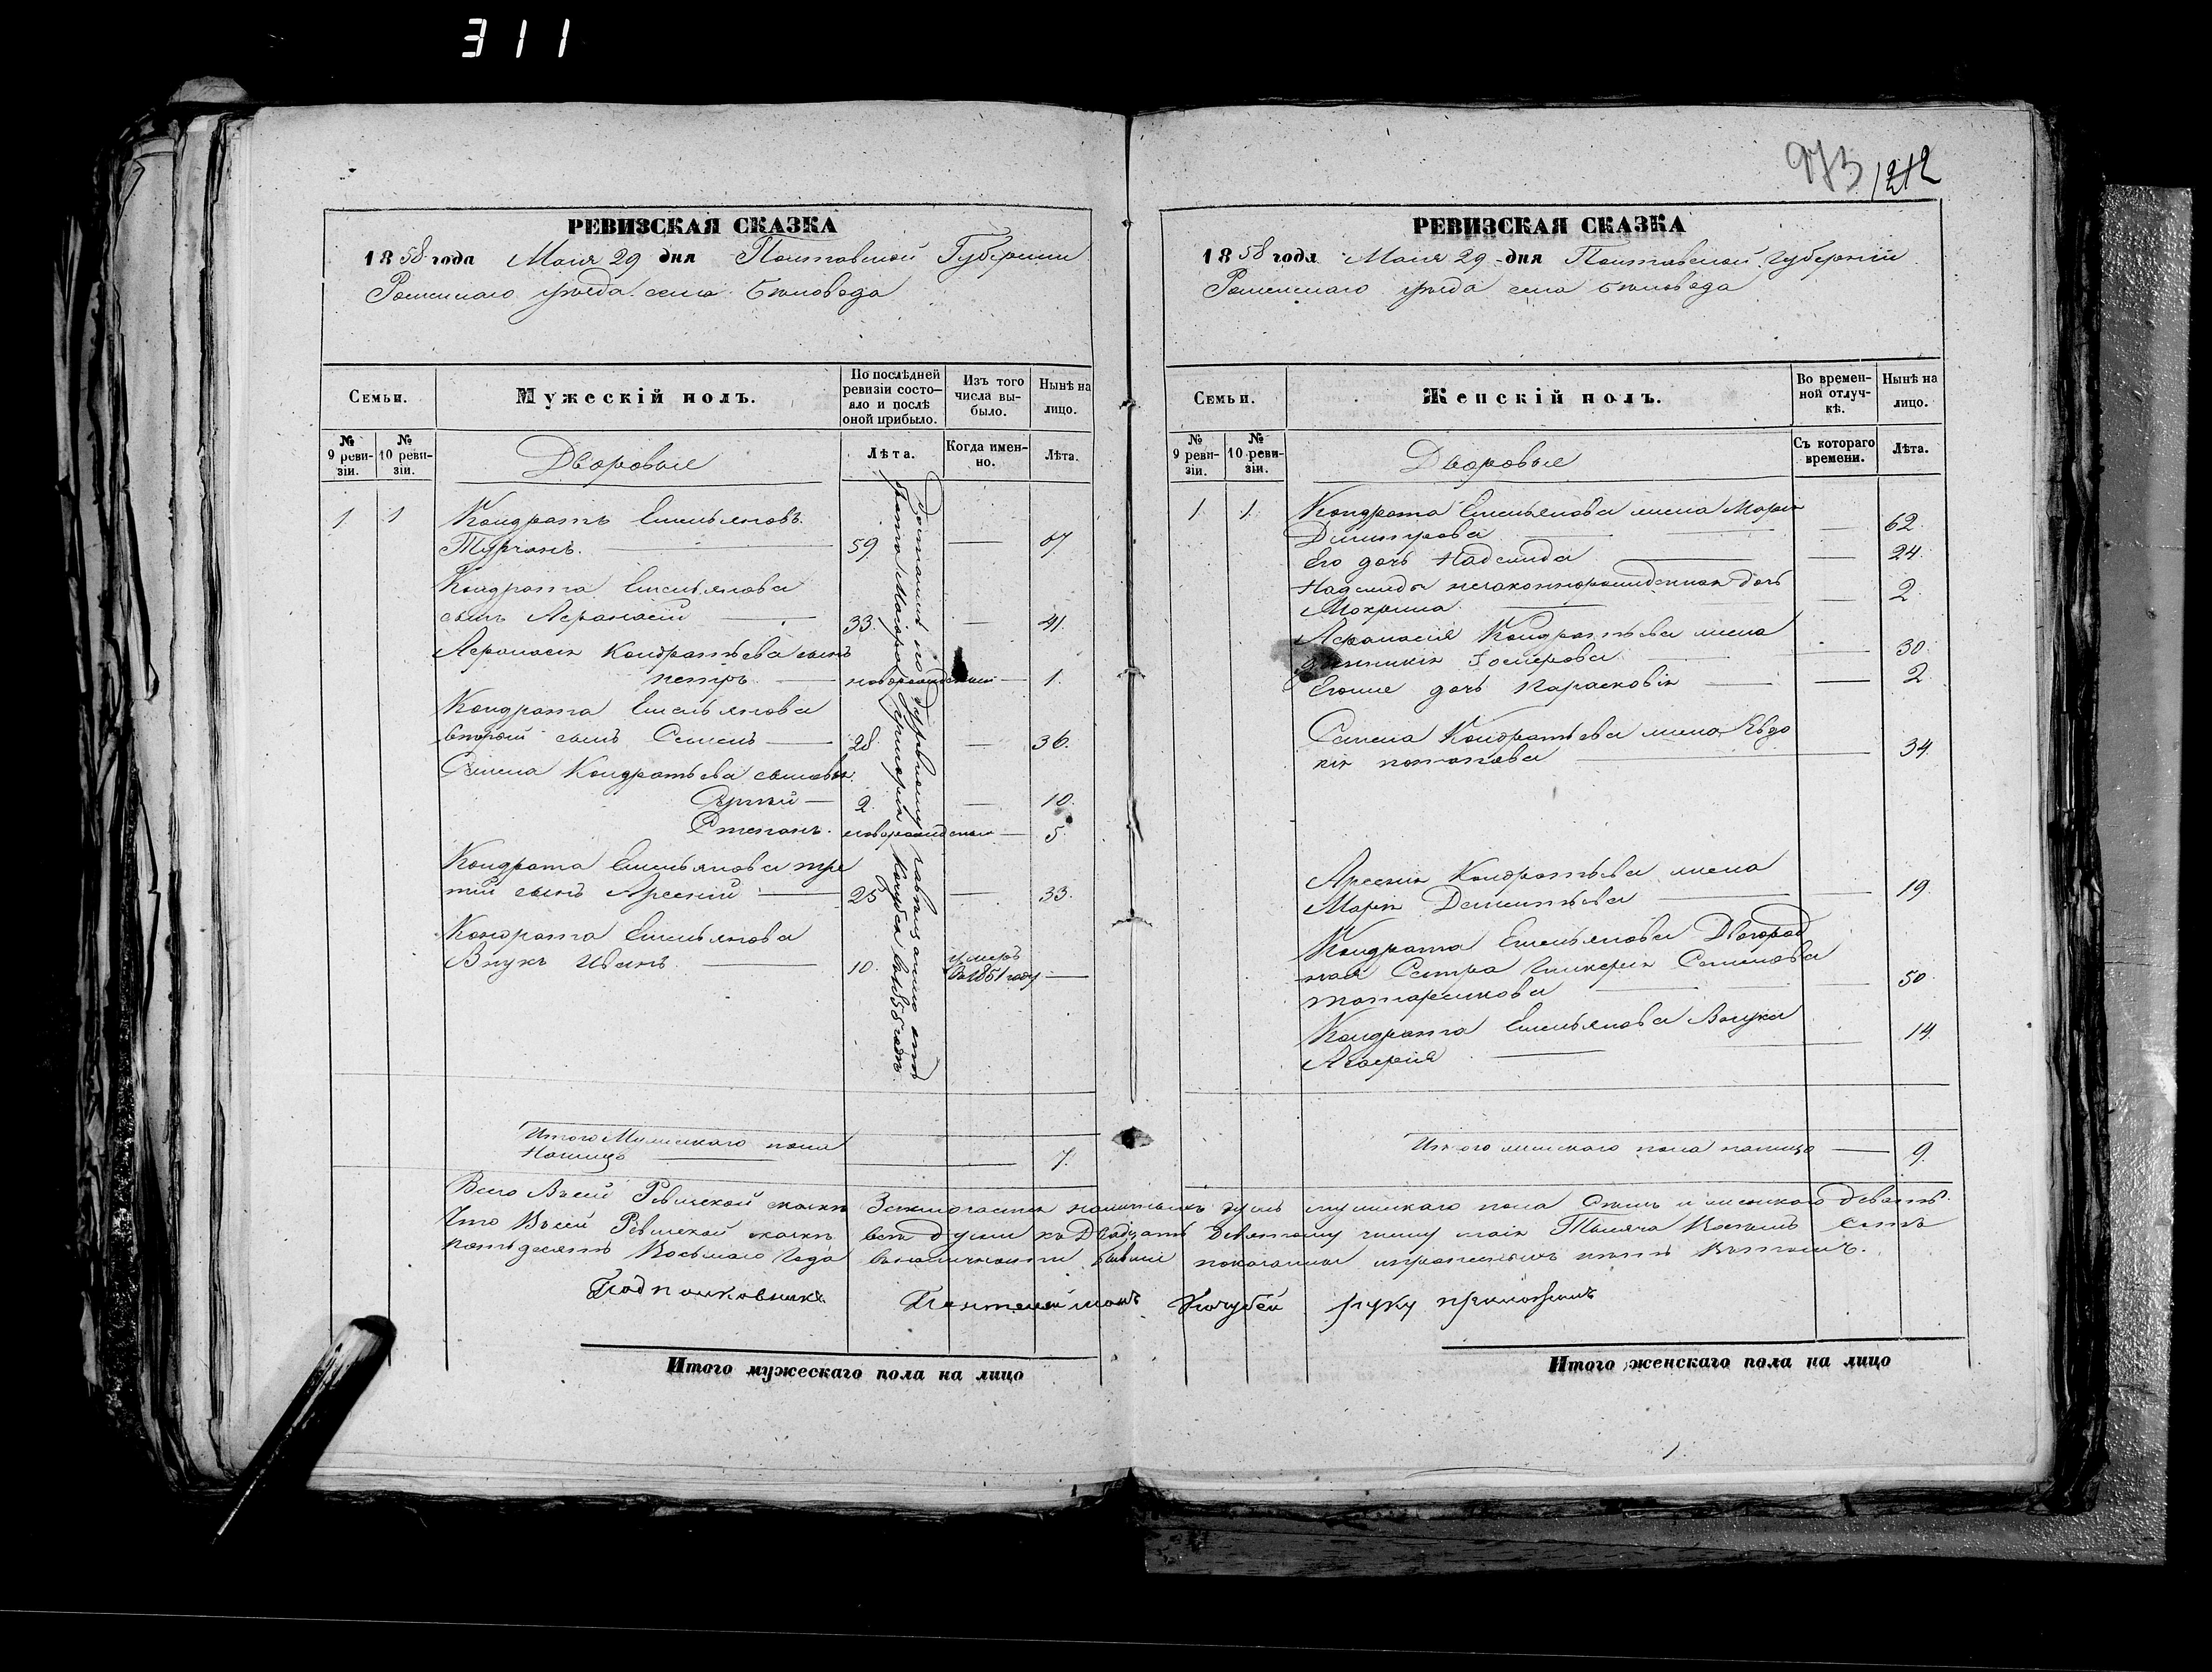 311
973 1212
РЕВИЗСКАЯ СКАЗКА
1858 года Маия 29 дня Полтавской Губернии
Роменскаго уѣзда села Бѣловода
Семьи.
Мужескій полъ.
По послѣдней ревизіи состояло и послѣ оной прибыло.
Изъ того числа выбыло.
Нынѣ на лицо.
№ 9 ревизіи.
№ 10 ревизіи.
Дворовые
Лѣта.
Когда именно.
Лѣта.
1 1 Кондратъ Емельяновъ
Турчанъ. 59 — 67
Кондрата Емельянова
сынъ Афанасій 33. — 41.
Афанасія Кондратьева сынъ
петръ новорожденный — 1.
Кондрата Емельянова
второй сынъ Семенъ 28. — 36.
Семена Кондратьева сыновья
Сергѣй 2. — 10.
Степанъ. новорожденный — 5.
Кондрата Емельянова тре
тій сынъ Арсеній 25 — 33.
Кондрата Емельянова
Внукъ Иванъ 10. умеръ
въ 1851 году —
Достались по раздѣльному акту отъ
брата Маіора Григорія Кочубея въ 1856 годѣ.
Итого Мужескаго пола
Налицо 7.
РЕВИЗСКАЯ СКАЗКА
1858 года Маия 29 дня Полтавской Губерніи
Роменскаго уѣзда села Бѣловода
Семьи.
Женскій полъ.
Во временной отлучкѣ.
Нынѣ на лицо.
№ 9 ревизіи.
№ 10 ревизіи.
Дворовые
Съ котораго времени.
Лѣта.
1 1. Кондрата Емельянова жена Марья
Димитрова — 62.
Его дочь Надежда — 24.
Надежды незаконнорожденная дочь
Мокрина — 2.
Афанасія Кондратьева жена
Іосифова — 30.
Егоже дочь Парасковія — 2
Семена Кондратьева жена Евдо
кія потапова — 34.
Арсенія Кондратьева жена
Марія Дементьева — 19.
Кондрата Емельянова Двоюрод
ная Сестра Гликерія Семенова
— 50.
Кондрата Емельянова Внука
Агафія — 14.
Итого женскаго пола налицо — 9.
Всего Въсей Ревизской сказкѣ Заключается наличныхъ душъ мужескаго пола Семь и женскаго девять.
Что Въсей Ревизской сказкѣ всѣ души къ Двадцать Девятому числу маія Тысяча Восемь Сотъ
пятьдесятъ Восьмаго Года вналичности бывшіе показаны
Подполковникъ Пантелеймонъ Кочубей руку приложилъ
Итого мужескаго пола на лицо
Итого женскаго пола на лицо